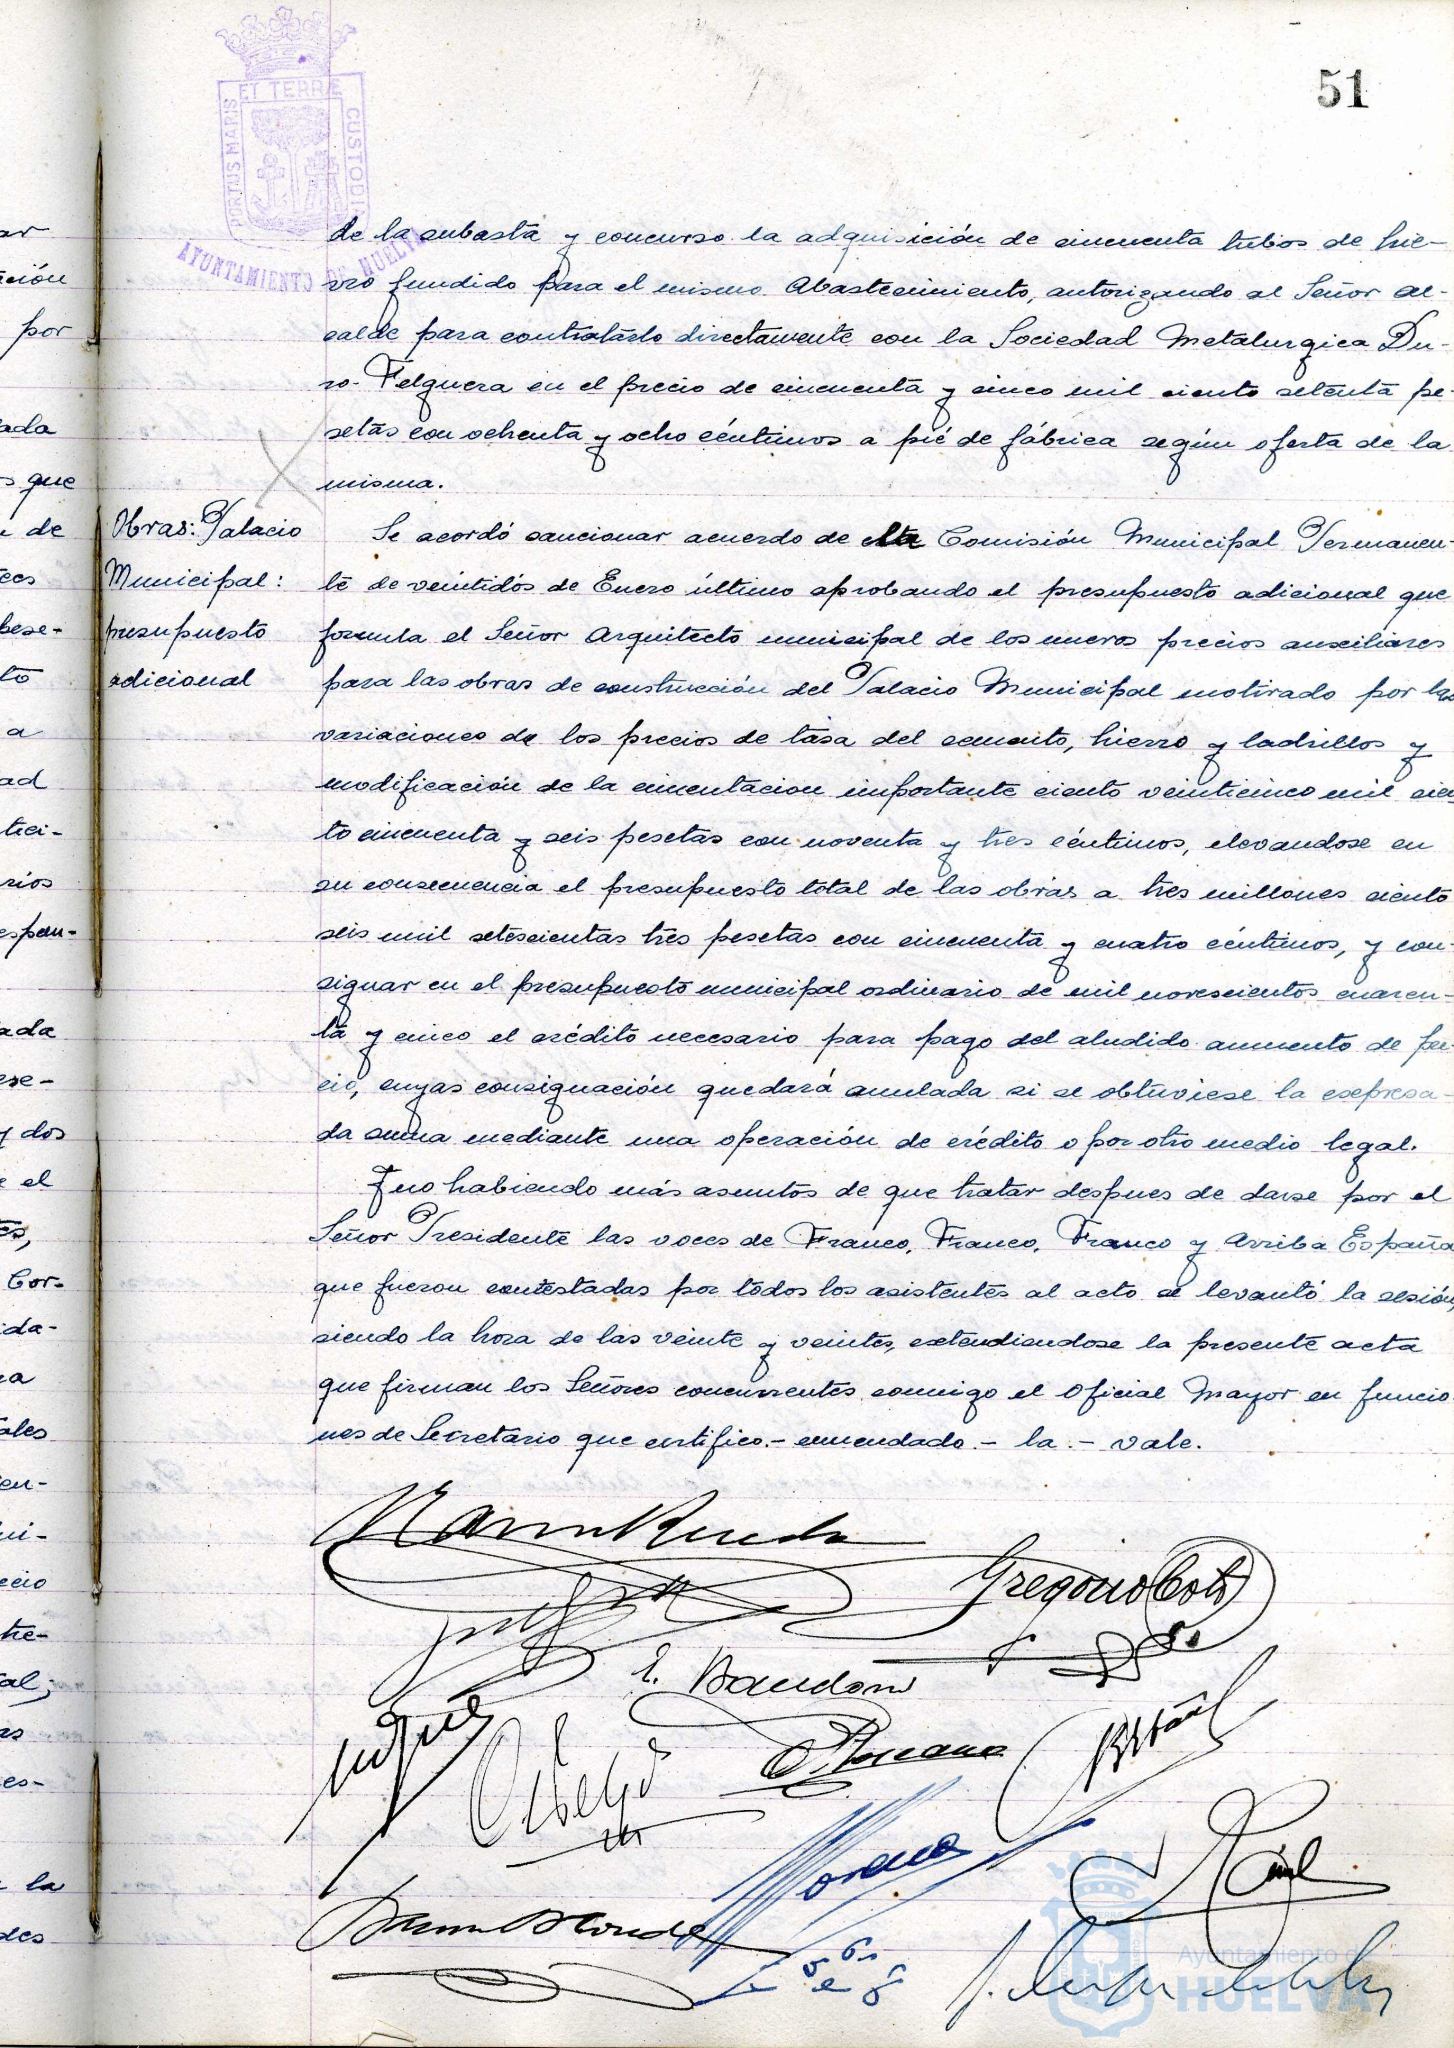 51
PORTUS MARIS ET TERRÆ CUSTODI
AYUNTAMIENTO DE HUELVA
de la subasta y concurso la adquisición de cincuenta tubos de hie-
rro fundido para el mismo Abastecimiento, autorizando al Señor Al-
calde para contratarlo directamente con la Sociedad Metalurgica Du-
ro-Felguera en el precio de cincuenta y cinco mil ciento setenta pe-
setas con ochenta y ocho céntimos a pié de fábrica según oferta de la
misma.
Obras: Palacio
Municipal:
presupuesto
adicional
Se acordó sancionar acuerdo de la Comisión Municipal Permanen-
te de veintidós de Enero último aprobando el presupuesto adicional que
formula el Señor Arquitecto municipal de los nuevos precios auxiliares
para las obras de construcción del Palacio Municipal motivado por las
variaciones de los precios de tasa del cemento, hierro y ladrillos y
modificación de la cimentacion importante ciento veinticinco mil cien
to cincuenta y seis pesetas con noventa y tres céntimos, elevandose en
su consecuencia el presupuesto total de las obras a tres millones ciento
seis mil setescientas tres pesetas con cincuenta y cuatro céntimos, y con-
signar en el presupuesto municipal ordinario de mil novescientos cuaren-
ta y cinco el crédito necesario para pago del aludido aumento de pre-
cio, cuyas consignación quedará anulada si se obtuviese la expresa-
da suma mediante una operación de crédito o por otro medio legal.
Y no habiendo más asuntos de que tratar despues de darse por el
Señor Presidente las voces de Franco, Franco, Franco y Arriba España
que fueron contestadas por todos los asistentes al acto se levantó la sesión,
siendo la hora de las veinte y veinte, extendiendose la presente acta
que firman los Señores concurrentes conmigo el Oficial Mayor en funcio
nes de Secretario que certifico.- enmendado.- la.- vale.
Gregorio
E.
Morano
Ayuntamiento de
HUELVA
ar
ción
por
ada
s que
de
bese-
to
a
ad
tici-
rios
espon-
ada
ese-
y dos
e el
Cor-
ida-
ra
ales
en-
ui-
ecio
tre-
al;
es-
la
des